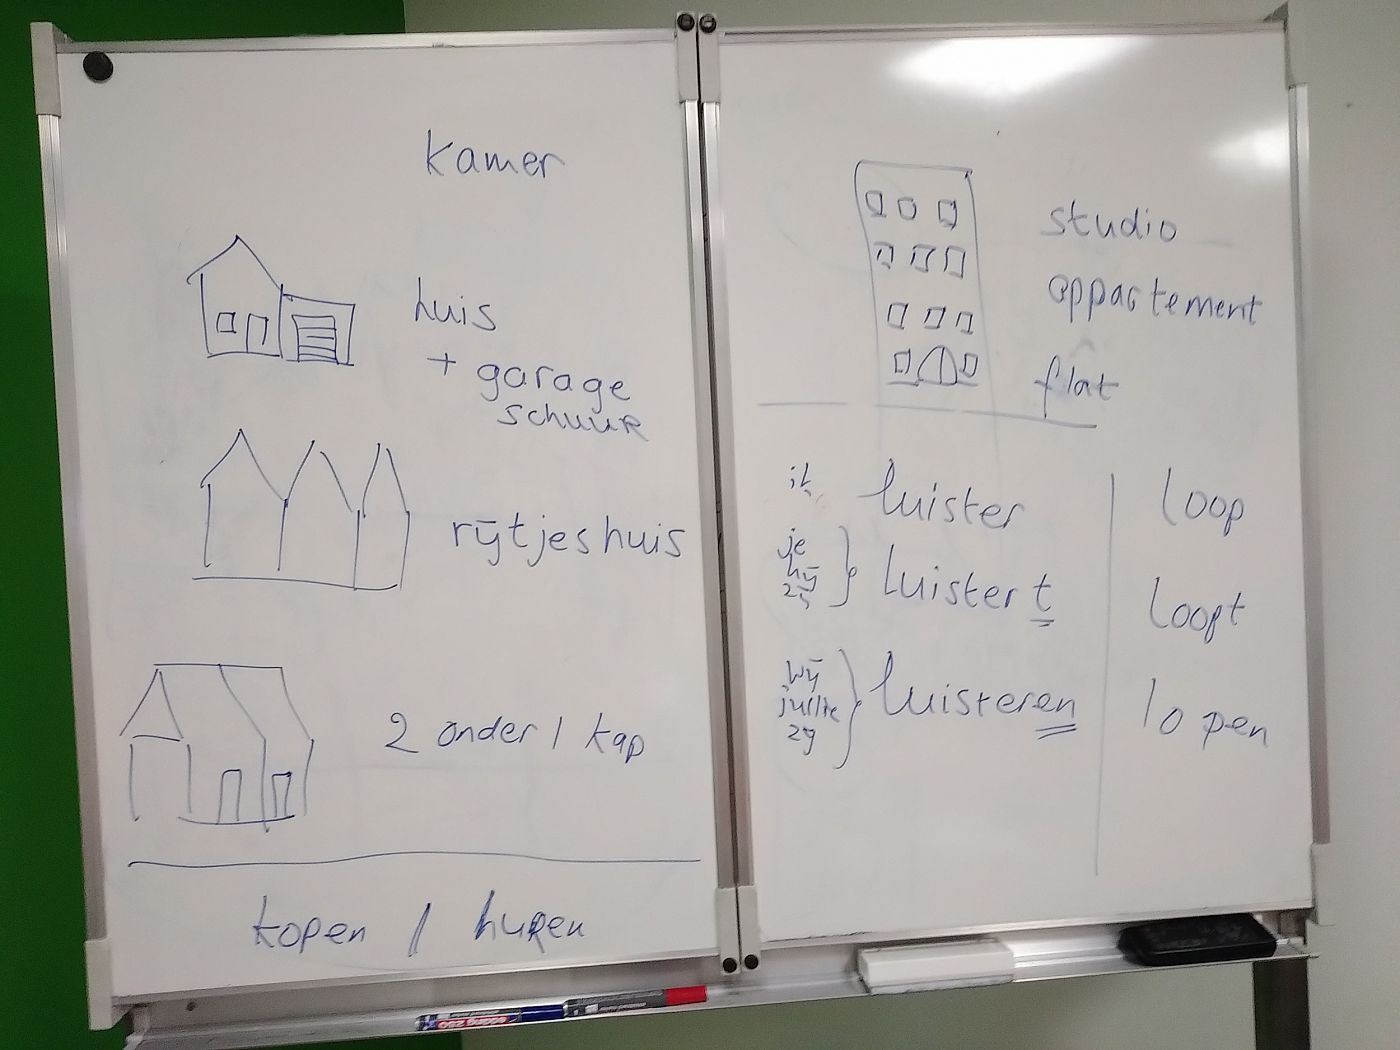 kamer
huis
+ garage
schuur
rijtjeshuis
2 onder 1 kap
kopen / huren
studio
appartement
flat
ik luister loop
je
hij
zij
luistert loopt
wij
jullie
zij
luisteren lopen
edding 250